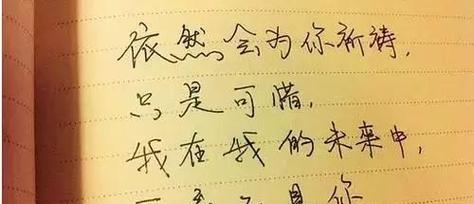 依然会为你祈祷,
只是可惜,
我在我的未来中,
是你